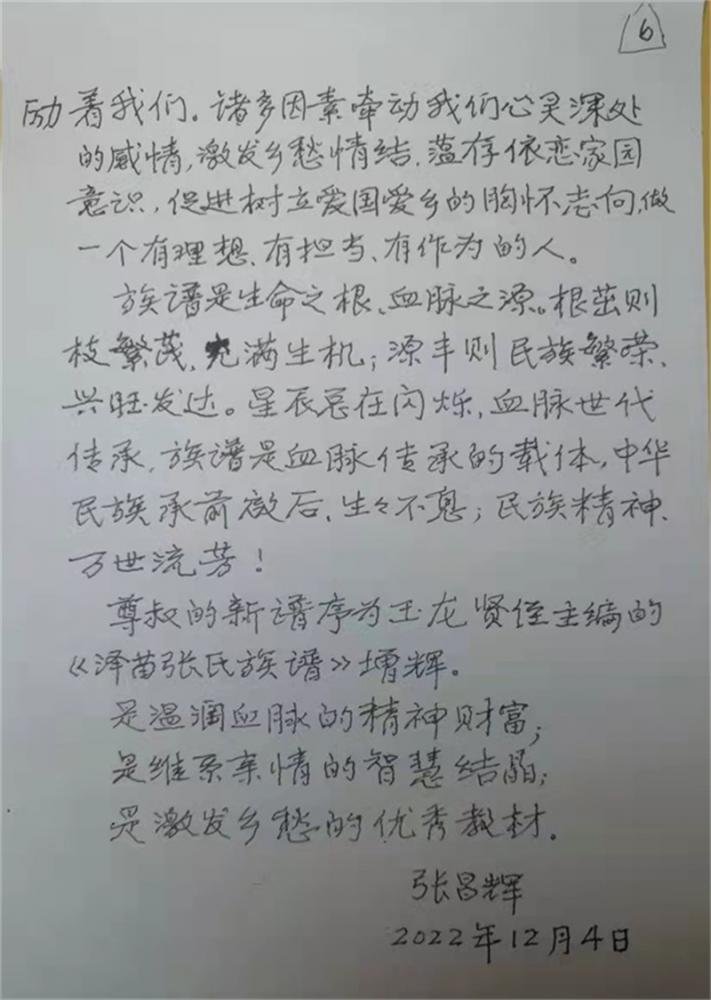 6
励着我们。诸多因素牵动我们心灵深处
的感情,激发乡愁情结,蕴存依恋家园
意识,促进树立爱国爱乡的胸怀志向,做
一个有理想、有担当、有作为的人。
族谱是生命之根、血脉之源。根茁则
枝繁茂、充满生机;源丰则民族繁荣、
兴旺发达。星辰总在闪烁,血脉世代
传承,族谱是血脉传承的载体,中华
民族承前启后,生々不息;民族精神、
万世流芳!
尊叔的新谱序为玉龙贤侄主编的
《泽苗张氏族谱》增辉。
是温润血脉的精神财富;
是维系亲情的智慧结晶;
是激发乡愁的优秀教材.
张昌辉
2022年12月4日